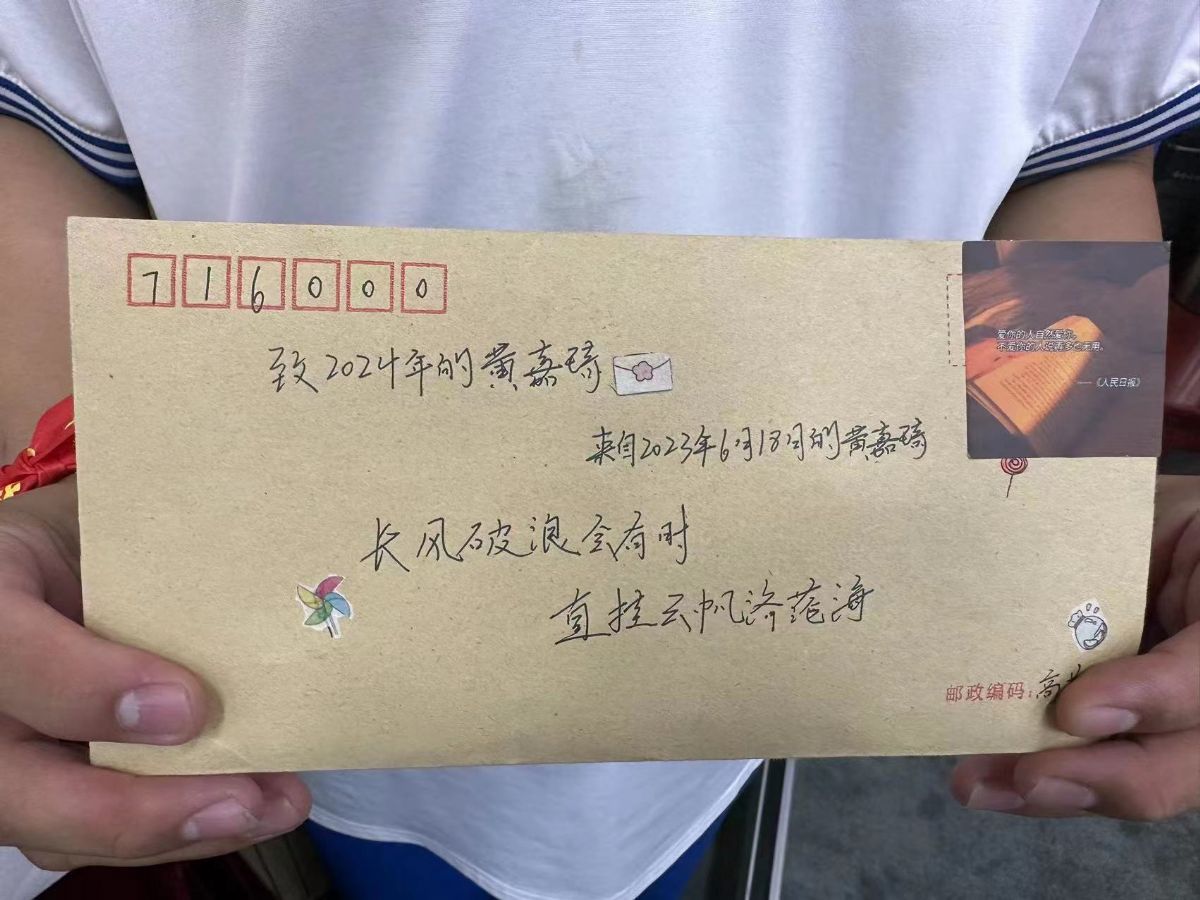 716000
致2024年的黄嘉琦
来自2023年6月18日的黄嘉琦
爱你的人自然爱你。
不爱你的人说再多也无用。
——《人民日报》
长风破浪会有时
直挂云帆济苍海
邮政编码：高